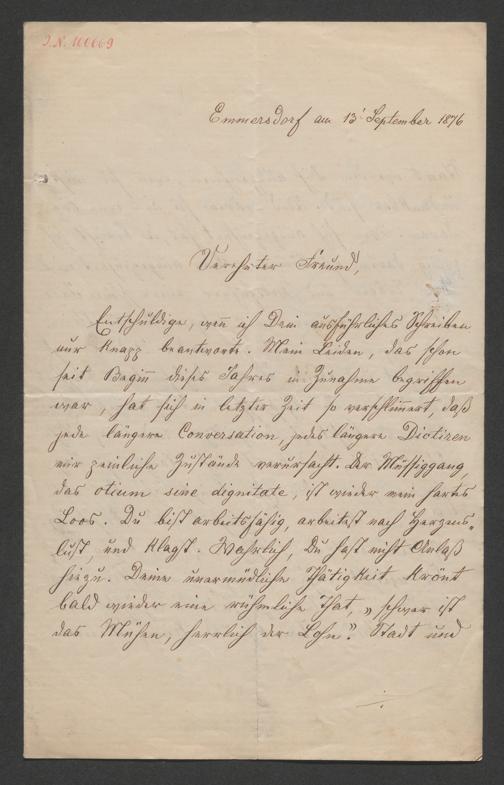 I.N. 100669
Emmersdorf am 13' September 1876
Verehrter Freund,
Entschuldige, wen̄ ich Dein ausführliches Schreiben
nur knapp beantworte. Mein Leiden, das schon
seit Begin̄ dieses Jahres in Zunahme begriffen
war, hat sich in letzter Zeit so verschlim̄ert, daß
jede längere Conversation, jedes längere Dictiren
mir peinliche Zustände verursacht. Der Müssiggang,
das otium sine dignitate, ist wieder mein hartes
Loos. Du bist arbeitsfähig, arbeitest nach Herzens-
lust, und klagst. Wahrlich, Du hast nicht Anlaß
hiezu. Deine unermüdliche Thätigkeit krönt
bald wieder eine rühmliche That, „schwer ist
das Mühen, herrlich der Lohn". Stadt und